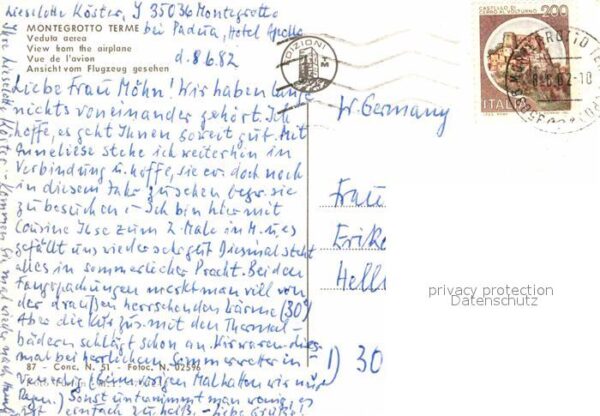 Lieselotte Köster, I 35036 Montegrotto
MONTEGROTTO TERME bei Padua, Hotel Apollo
Veduta aerea
View from the airplane
Vue de l'avion
Ansicht vom Flugzeug gesehen
d. 8.6.82
EDIZIONI
CASTELLO DI
CERRO AL VOLTURNO
200
ITALIA
Liebe Frau Möhn! Wir haben lange
nichts voneinander gehört. Ich
hoffe, es geht Ihnen soweit gut. Mit
Anneliese stehe ich weiterhin in
Verbindung u. hoffe, sie doch noch
in diesem Jahr zu sehen bezw. sie
zu besuchen. – Ich bin hier mit
Cousine Ilse zum 2. Male in M. u. es
gefällt uns wieder sehr gut. Diesmal steht
alles in sommerlicher Pracht. Bei den
Fangopackungen merkt man viel von
der draußen herrschenden Wärme (30°)
Aber die Kur zus. mit den Thermal-
bädern schlägt schon an. Wir waren dies-
mal bei herrlichem Sommerwetter in
Venedig (beim vorigen Mal hatten wir nur
Regen.) Sonst unternimmt man wenig, es
ist einfach zu heiß. – Liebe Grüße!
Ihre Lieselotte Köster. – Kommen Sie mal wieder nach
W. Germany
Frau
Erike
Helli
D 30
87 - Conc. N. 51 - Fotoc. N. 02596
privacy protection
Datenschutz